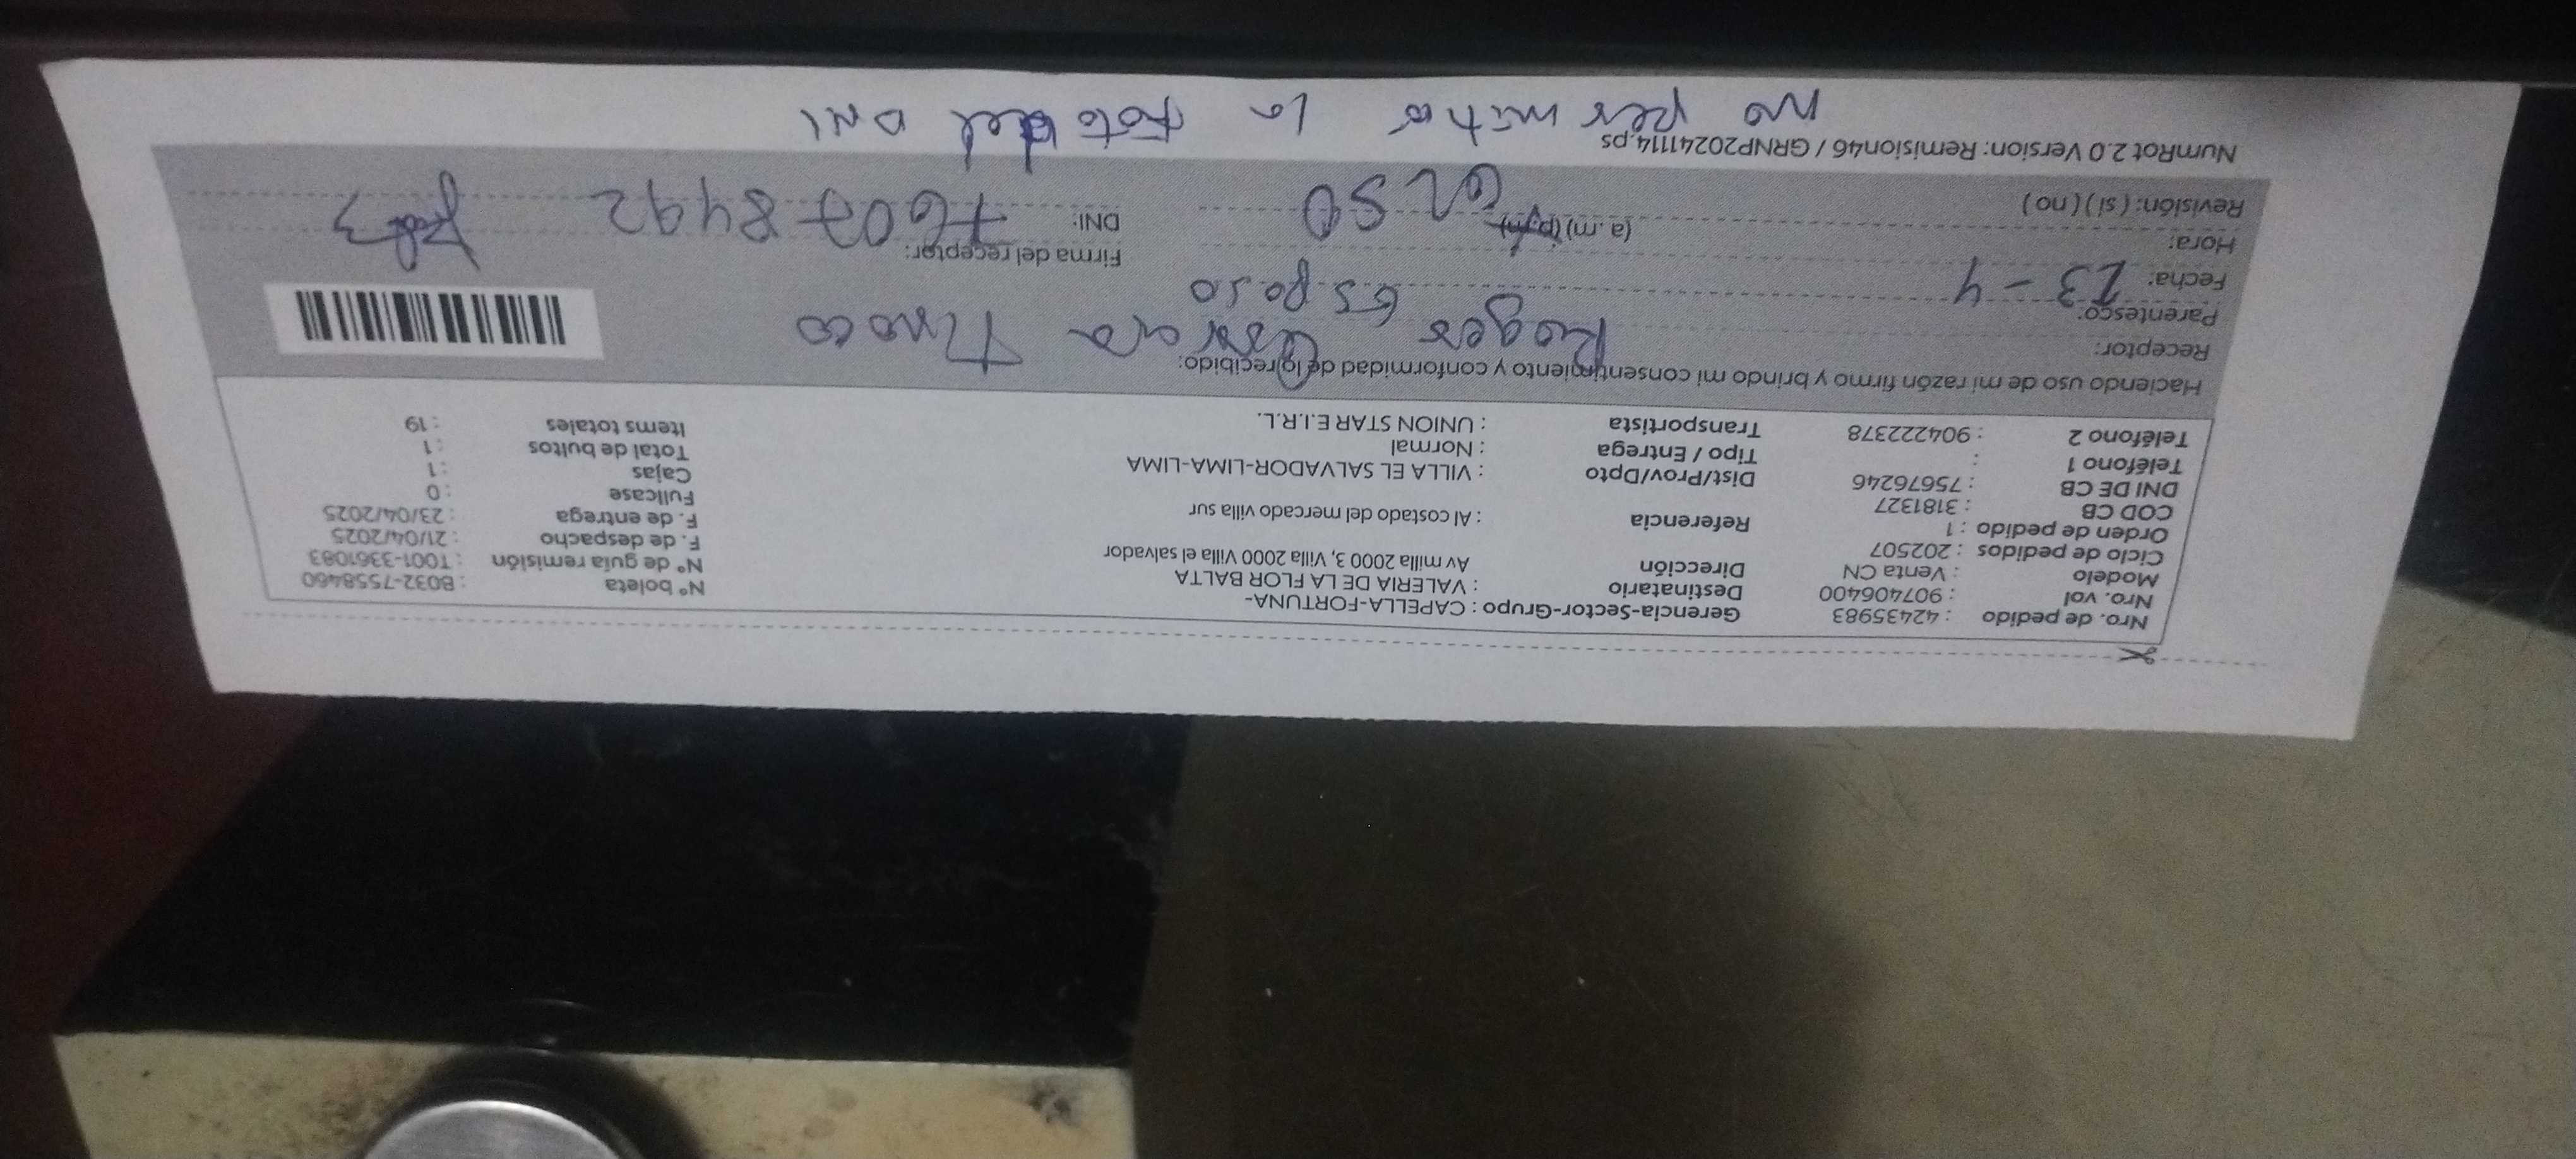 Nro. de pedido : 42435983 Gerencia-Sector-Grupo : CAPELLA-FORTUNA- N° boleta : B032-7558460
Nro. vol : 907406400 Destinatario : VALERIA DE LA FLOR BALTA N° de guía remisión : T001-3361083
Modelo : Venta CN Dirección Av milla 2000 3, Villa 2000 Villa el salvador F. de despacho : 21/04/2025
Ciclo de pedidos : 202507 F. de entrega : 23/04/2025
Orden de pedido : 1 Referencia : Al costado del mercado villa sur Fullcase : 0
COD CB : 3181327 Cajas : 1
DNI DE CB : 75676246 Dist/Prov/Dpto : VILLA EL SALVADOR-LIMA-LIMA Total de bultos : 1
Teléfono 1 : Tipo / Entrega : Normal Items totales : 19
Teléfono 2 : 904222378 Transportista : UNION STAR E.I.R.L.
Haciendo uso de mi razón firmo y brindo mi consentimiento y conformidad de lo recibido:
Receptor: Roger Tinoco
Parentesco: Esposo
Fecha: 23-4 Firma del receptor:
Hora: (a.m) (p.m) DNI: 76078492
Revisión: ( si ) ( no )
NumRot 2.0 Version: Remision46 / GRNP20241114.ps
no permitió la foto del DNI